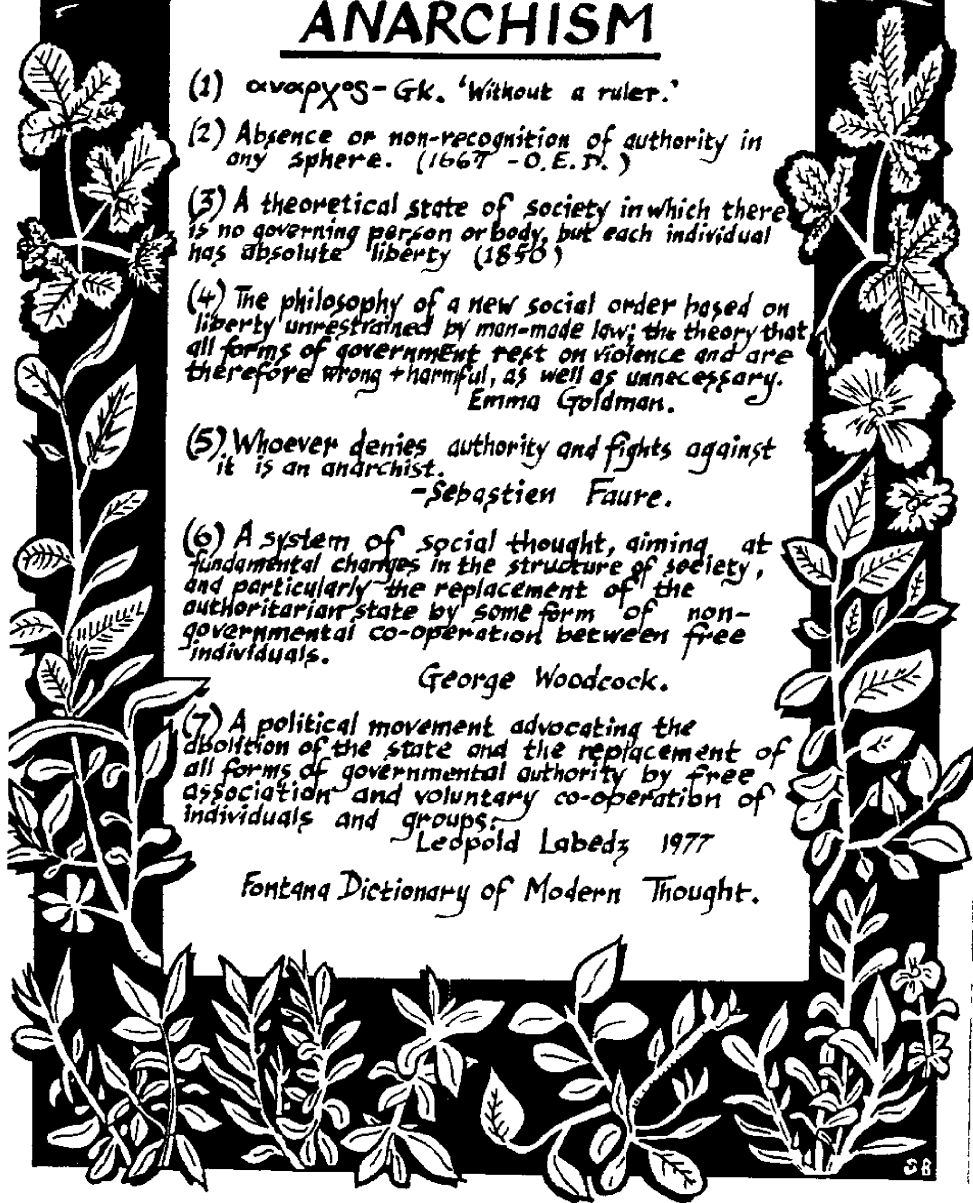 ANARCHISM
(1) αναρχος - GK. 'Without a ruler.'
(2) Absence or non-recognition of authority in
any sphere. (1667 - O.E.D.)
(3) A theoretical state of society in which there
is no governing person or body, but each individual
has absolute liberty (1850)
(4) The philosophy of a new social order based on
liberty unrestrained by man-made law; the theory that
all forms of government rest on violence and are
therefore wrong + harmful, as well as unnecessary.
Emma Goldman.
(5) Whoever denies authority and fights against
it is an anarchist.
-Sebastien Faure.
(6) A system of social thought, aiming at
fundamental changes in the structure of society,
and particularly the replacement of the
authoritarian state by some form of non-
governmental co-operation between free
individuals.
George Woodcock.
(7) A political movement advocating the
abolition of the state and the replacement of
all forms of governmental authority by free
association and voluntary co-operation of
individuals and groups.
Leopold Labedz 1977
Fontana Dictionary of Modern Thought.
SB